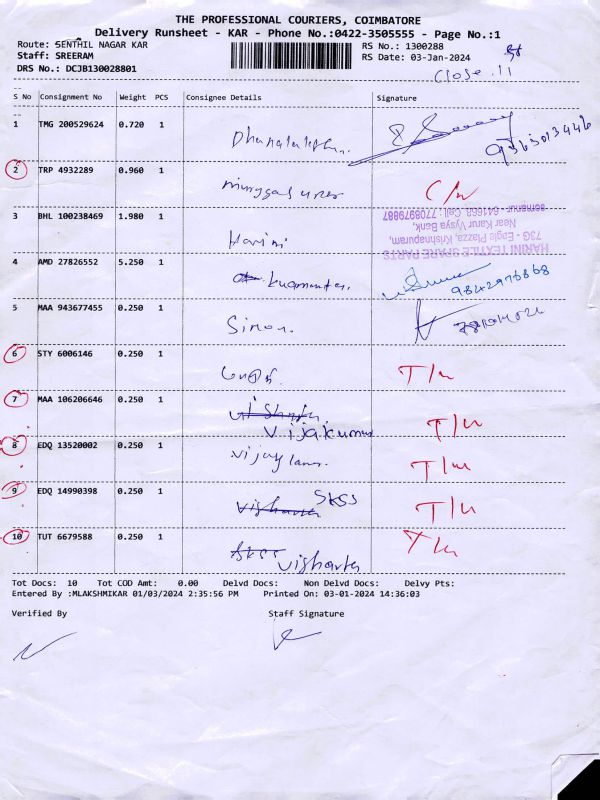 THE PROFESSIONAL COURIERS, COIMBATORE
Delivery Runsheet - KAR - Phone No.:0422-3505555 - Page No.:1
Route: SENTHIL NAGAR KAR
RS No.: 1300288
Staff: SREERAM
RS Date: 03-Jan-2024
DRS No.: DCJB130028801
Close.11
S No Consignment No Weight PCS Consignee Details Signature
1 TMG 200529624 0.720 1
9365013446
2 TRP 4932289 0.960 1
C/w
3 BHL 100238469 1.980 1 Harini
HARINI TEXTILE SPARE PARTS
73G - Eagle Plazza, Krishnapuram,
Near Karur Vysya Bank,
somanur - 641668. Cell : 7708979887
4 AMD 27826552 5.250 1
9842976868
5 MAA 943677455 0.250 1 Simon.
6 STY 6006146 0.250 1 T/w
7 MAA 106206646 0.250 1 Vijakumar T/w
8 EDQ 13520002 0.250 1 T/w
9 EDQ 14990398 0.250 1 SKSS T/w
10 TUT 6679588 0.250 1 T/w
Tot Docs: 10 Tot COD Amt: 0.00 Delvd Docs: Non Delvd Docs: Delvy Pts:
Entered By :MLAKSHMIKAR 01/03/2024 2:35:56 PM Printed On: 03-01-2024 14:36:03
Verified By Staff Signature